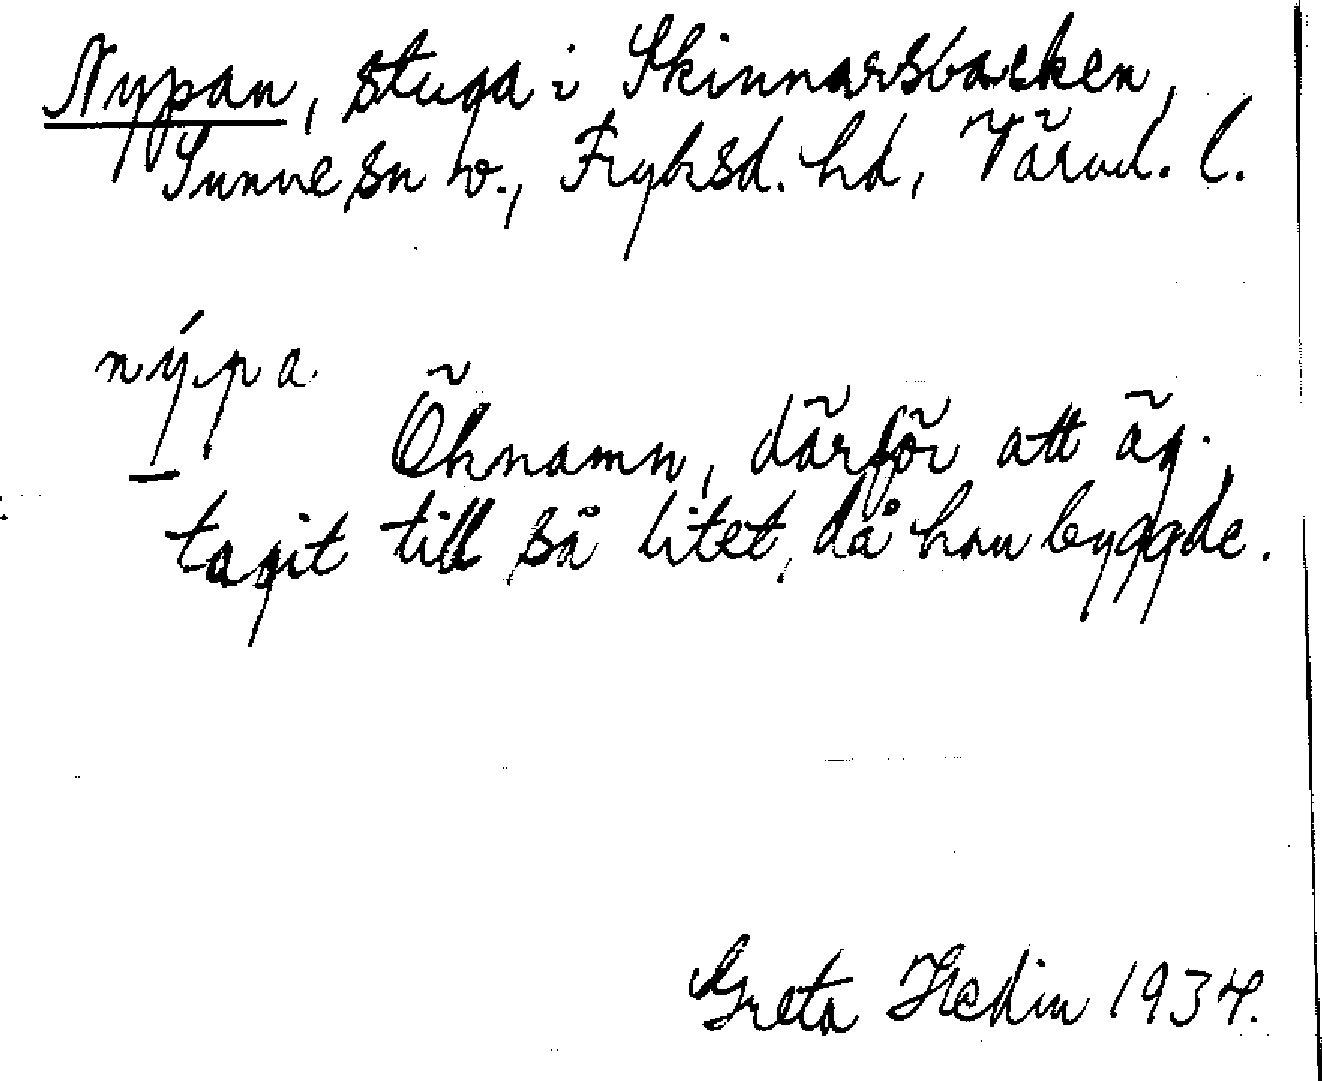 Nypan, stuga i Skinnarsbacken,
Sunne sn v., Fryksd. hd, Värml. l.
nýpa
Öknamn, därför att äg.
tagit till så litet, då han byggde.
Greta Hedin 1934.